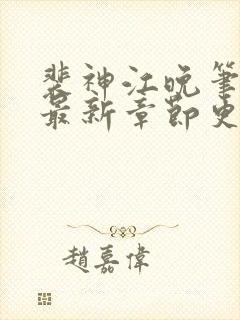 裴神江晚笔
最新章節史
趙嘉偉